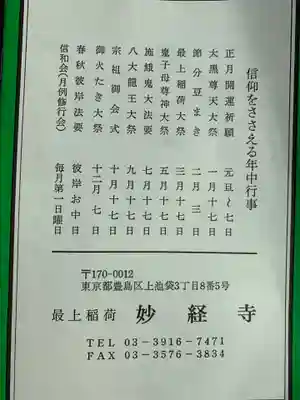 信仰をささえる年中行事
正月開運祈願　元旦～七日
大黒尊天大祭　一月十七日
節分豆まき　二月三日
最上稲荷大祭　三月十七日
鬼子母尊神大祭　五月十七日
施餓鬼大法要　七月十七日
八大龍王大祭　九月十七日
宗祖御会式　十月十七日
御火たき大祭　十二月七日
春秋彼岸法要　彼岸お中日
信和会(月例修行会)　毎月第一日曜日
〒170-0012
東京都豊島区上池袋3丁目8番5号
最上稲荷　妙経寺
TEL 03-3916-7471
FAX 03-3576-3834